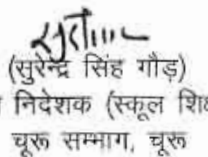 (सुरेन्द्र सिंह गौड़)
निदेशक (स्कूल
चूरू सम्भाग, चूरू